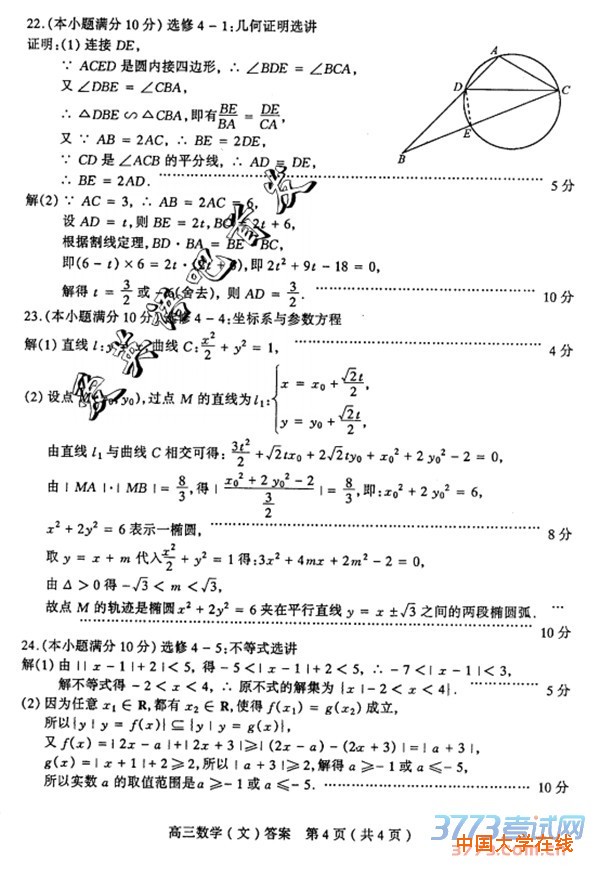 22.(本小题满分10分)选修4-1:几何证明选讲
证明:(1)连接DE,
∵ ACED是圆内接四边形,∴ ∠BDE = ∠BCA,
又∠DBE = ∠CBA,
∴ △DBE∽△CBA,即有BE/BA = DE/CA,
又∵ AB = 2AC,∴ BE = 2DE,
∵ CD是∠ACB的平分线,∴ AD = DE,
∴ BE = 2AD. 5分
A
D
C
E
B
解(2)∵ AC = 3,∴ AB = 2AC = 6,
设AD = t,则BE = 2t,BC = 2t + 6,
根据割线定理,BD·BA = BE·BC,
即(6 - t)×6 = 2t·(2t + 6),即2t² + 9t - 18 = 0,
解得t = 3/2 或 -6(舍去),则AD = 3/2. 10分
23.(本小题满分10分)选修4-4:坐标系与参数方程
解(1)直线l:y = x,曲线C:x²/2 + y² = 1, 4分
(2)设点M(x₀,y₀),过点M的直线为l₁:{ x = x₀ + √2t/2,
y = y₀ + √2t/2,
由直线l₁与曲线C相交可得:3t²/2 + √2tx₀ + 2√2ty₀ + x₀² + 2y₀² - 2 = 0,
由|MA|·|MB| = 8/3,得|(x₀² + 2y₀² - 2)/(3/2)| = 8/3,即:x₀² + 2y₀² = 6,
x² + 2y² = 6表示一椭圆, 8分
取y = x + m代入x²/2 + y² = 1得:3x² + 4mx + 2m² - 2 = 0,
由Δ > 0得 -√3 < m < √3,
故点M的轨迹是椭圆x² + 2y² = 6夹在平行直线y = x ± √3之间的两段椭圆弧.
10分
24.(本小题满分10分)选修4-5:不等式选讲
解(1)由||x - 1| + 2| < 5,得 -5 < |x - 1| + 2 < 5,∴ -7 < |x - 1| < 3,
解不等式得 -2 < x < 4,∴ 原不式的解集为{x|-2 < x < 4}. 5分
(2)因为任意x₁∈R,都有x₂∈R,使得f(x₁) = g(x₂)成立,
所以{y|y = f(x)}⊆{y|y = g(x)},
又f(x) = |2x - a| + |2x + 3|≥|(2x - a) - (2x + 3)| = |a + 3|,
g(x) = |x + 1| + 2≥2,所以|a + 3|≥2,解得a≥-1或a≤-5,
所以实数a的取值范围是a≥-1或a≤-5. 10分
高三数学(文)答案 第4页(共4页)
3773考试网
中国大学在线
www.3773.com.cn